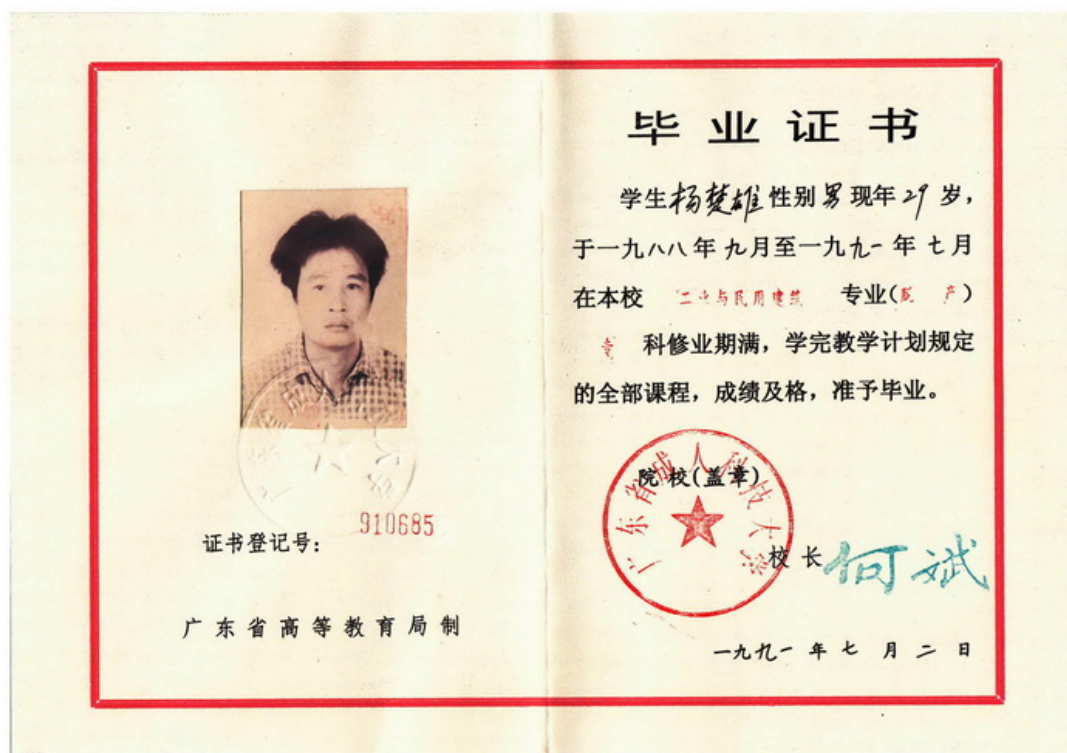 证书登记号：
910685
广东省高等教育局制
毕业证书
学生杨楚雄性别男现年29岁，
于一九八八年九月至一九九一年七月
在本校 工业与民用建筑 专业(脱产)
专 科修业期满，学完教学计划规定
的全部课程，成绩及格，准予毕业。
院校(盖章)
广东省成人科技大学
校长 何斌
一九九一年七月二日